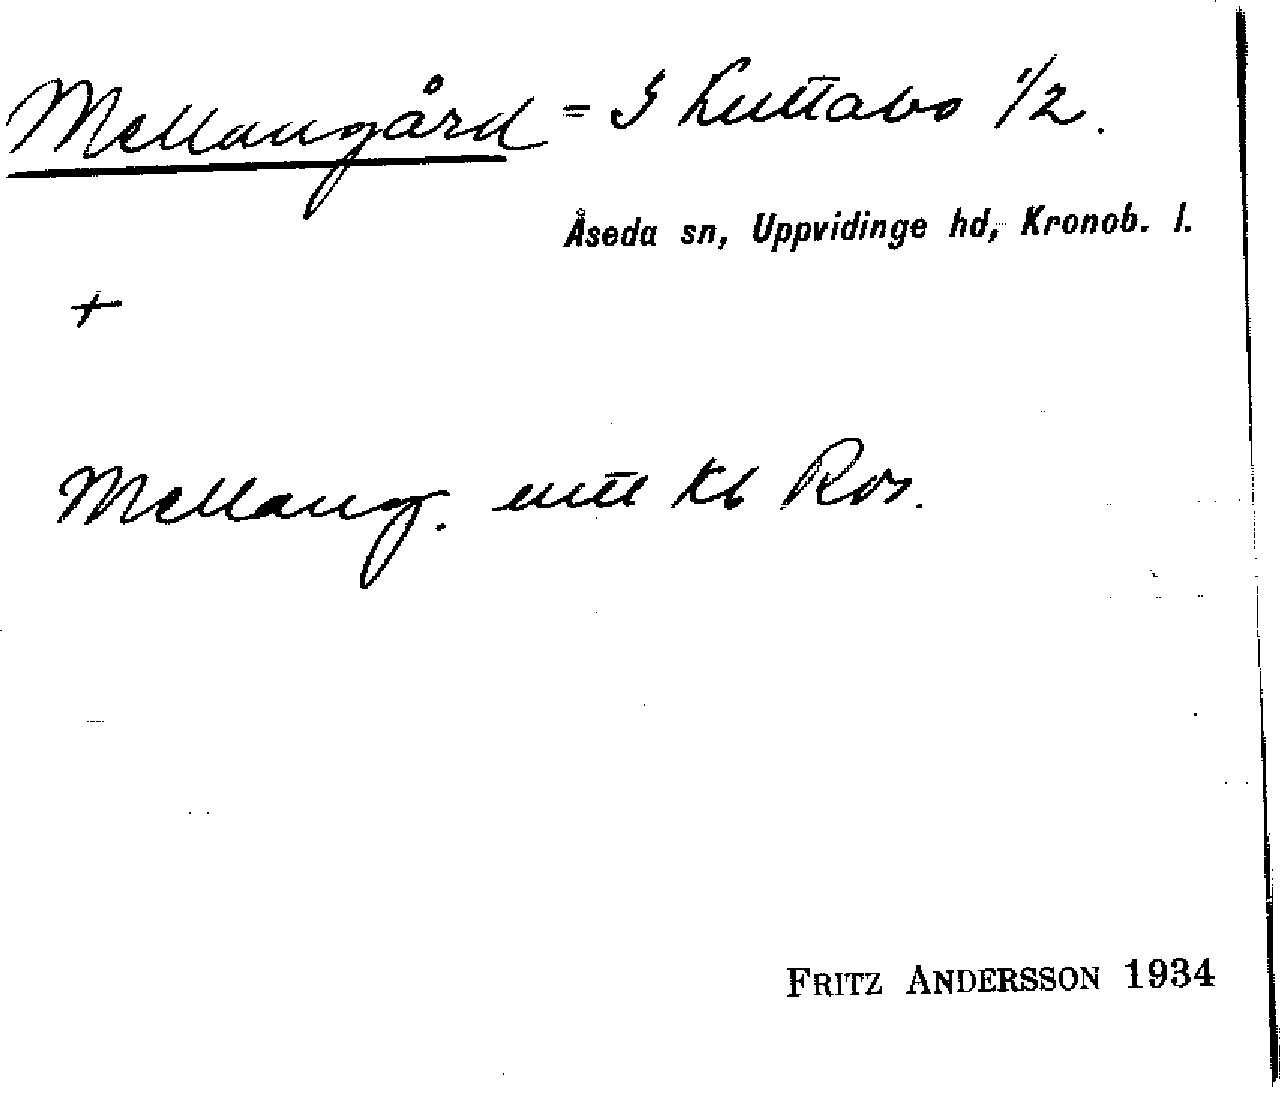 Mellangård = S Luttabo 1/2.
Åseda sn, Uppvidinge hd, Kronob. l.
+
Mellang. Kb Ros.
FRITZ ANDERSSON 1934